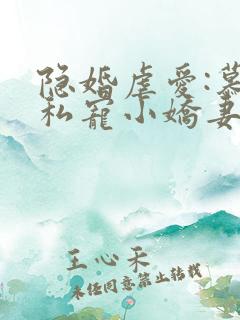 隐婚虐爱:慕
私宠小娇妻
王心禾
未经同意禁止转载